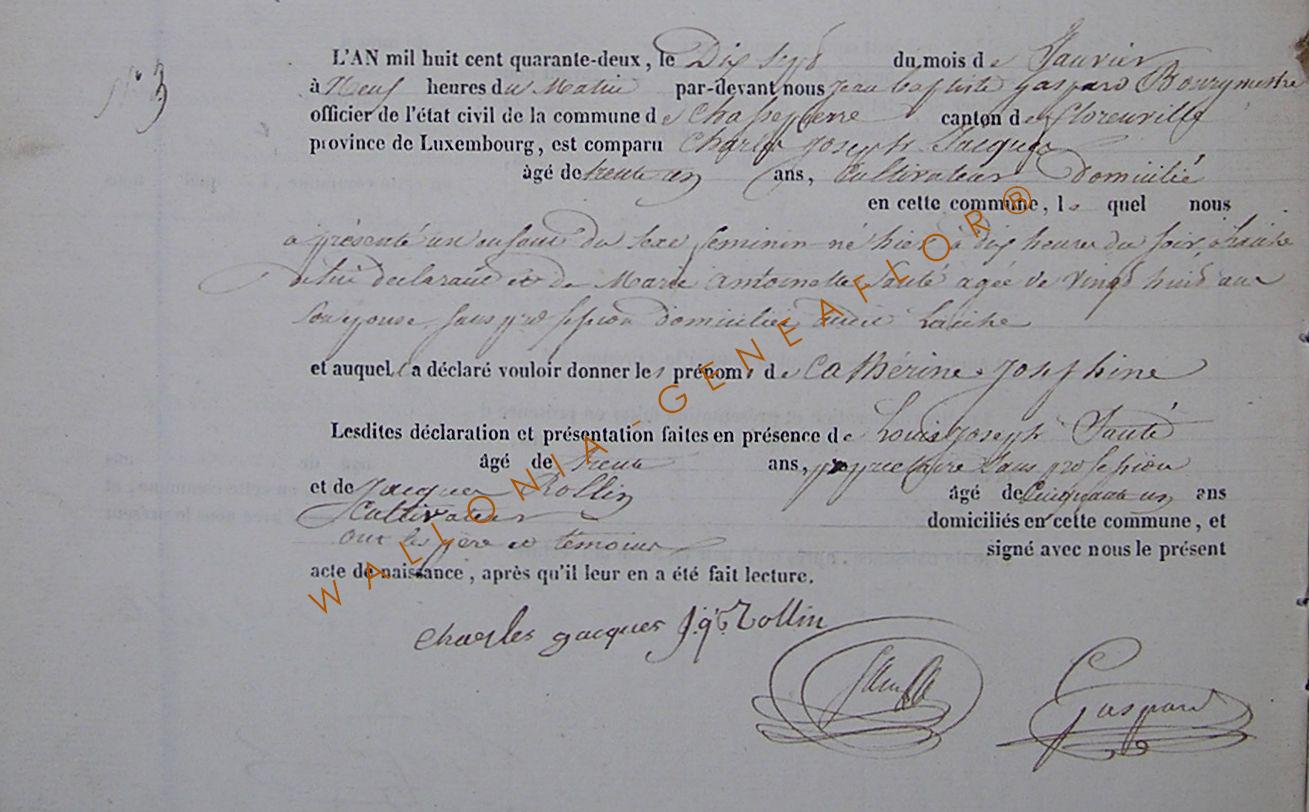 N° 3
L'AN mil huit cent quarante-deux, le Dix sept du mois de Janvier
à Neuf heures du Matin par-devant nous jean baptiste gaspard Bourgmestre
officier de l'état civil de la commune de Chassepierre canton de florenville
province de Luxembourg, est comparu Charles Joseph Jacques
âgé de trente un ans, Cultivateur Domicilié
en cette commune, le quel nous
a présenté un enfant du sexe feminin né hier à dix heures du soir à laiche
de lui declarant et de Marie antoinette Sauté agée de vingt huit ans
Son epouse sans profession domiciliée audit Laiche
et auquel il a déclaré vouloir donner les prénoms de Catherine Josephine
Lesdites déclaration et présentation faites en présence de Louis Joseph Sauté
âgé de trente ans, proprietaire Sans profession
et de Jacques Rollin âgé de Cinquante un ans
Cultivateur domiciliés en cette commune, et
ont les père et témoins signé avec nous le présent
acte de naissance, après qu'il leur en a été fait lecture.
Charles jacques J. qs Rollin
Sauté Gaspard
WALLONIA-GENEAFLOR®